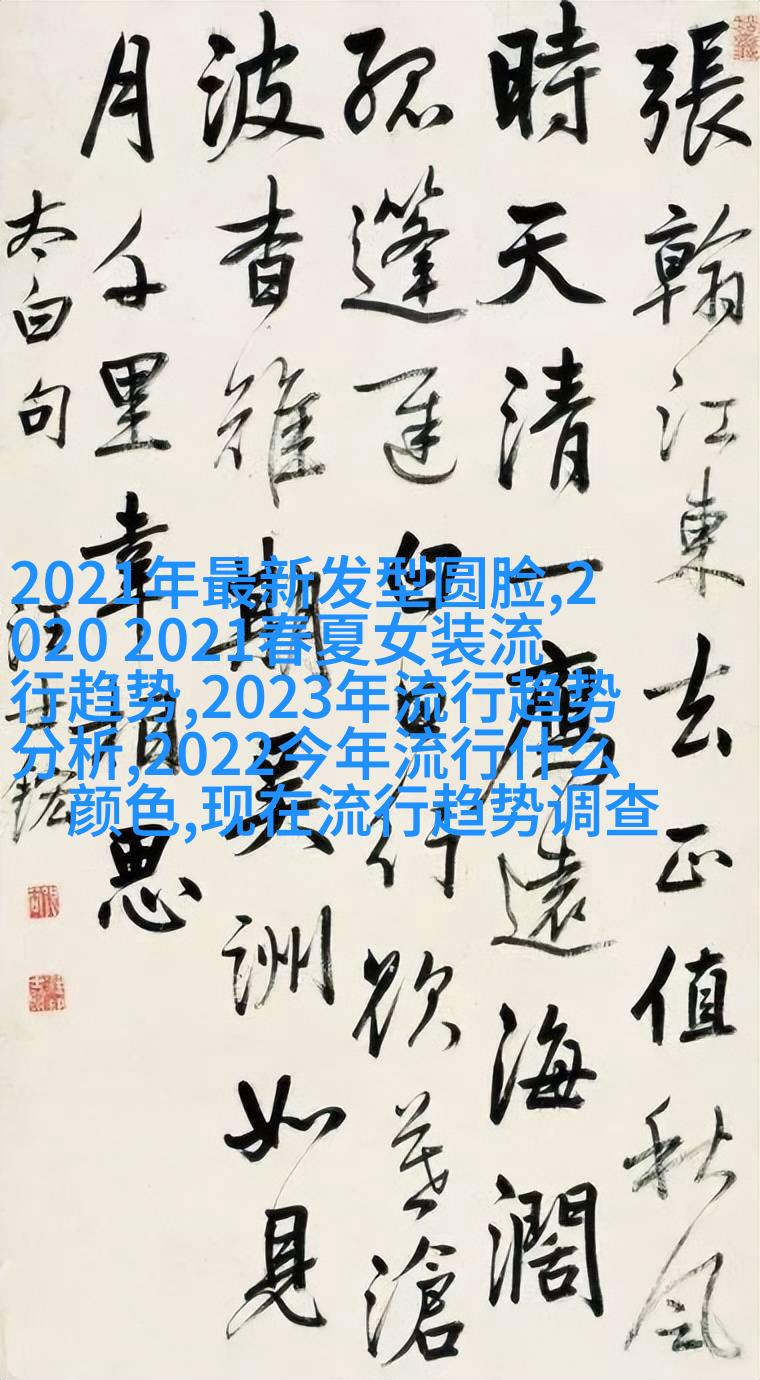 張翰江東去正值秋風
時天清一鴈遠海濶
孤蓬遲日行欲莫滄
波杳難期吳洲如見
月千里幸相思
太白句
汪士鋐
2021年最新发型圆脸,2
020 2021春夏女装流
行趋势,2023年流行趋势
分析,2022今年流行什么
颜色,现在流行趋势调查